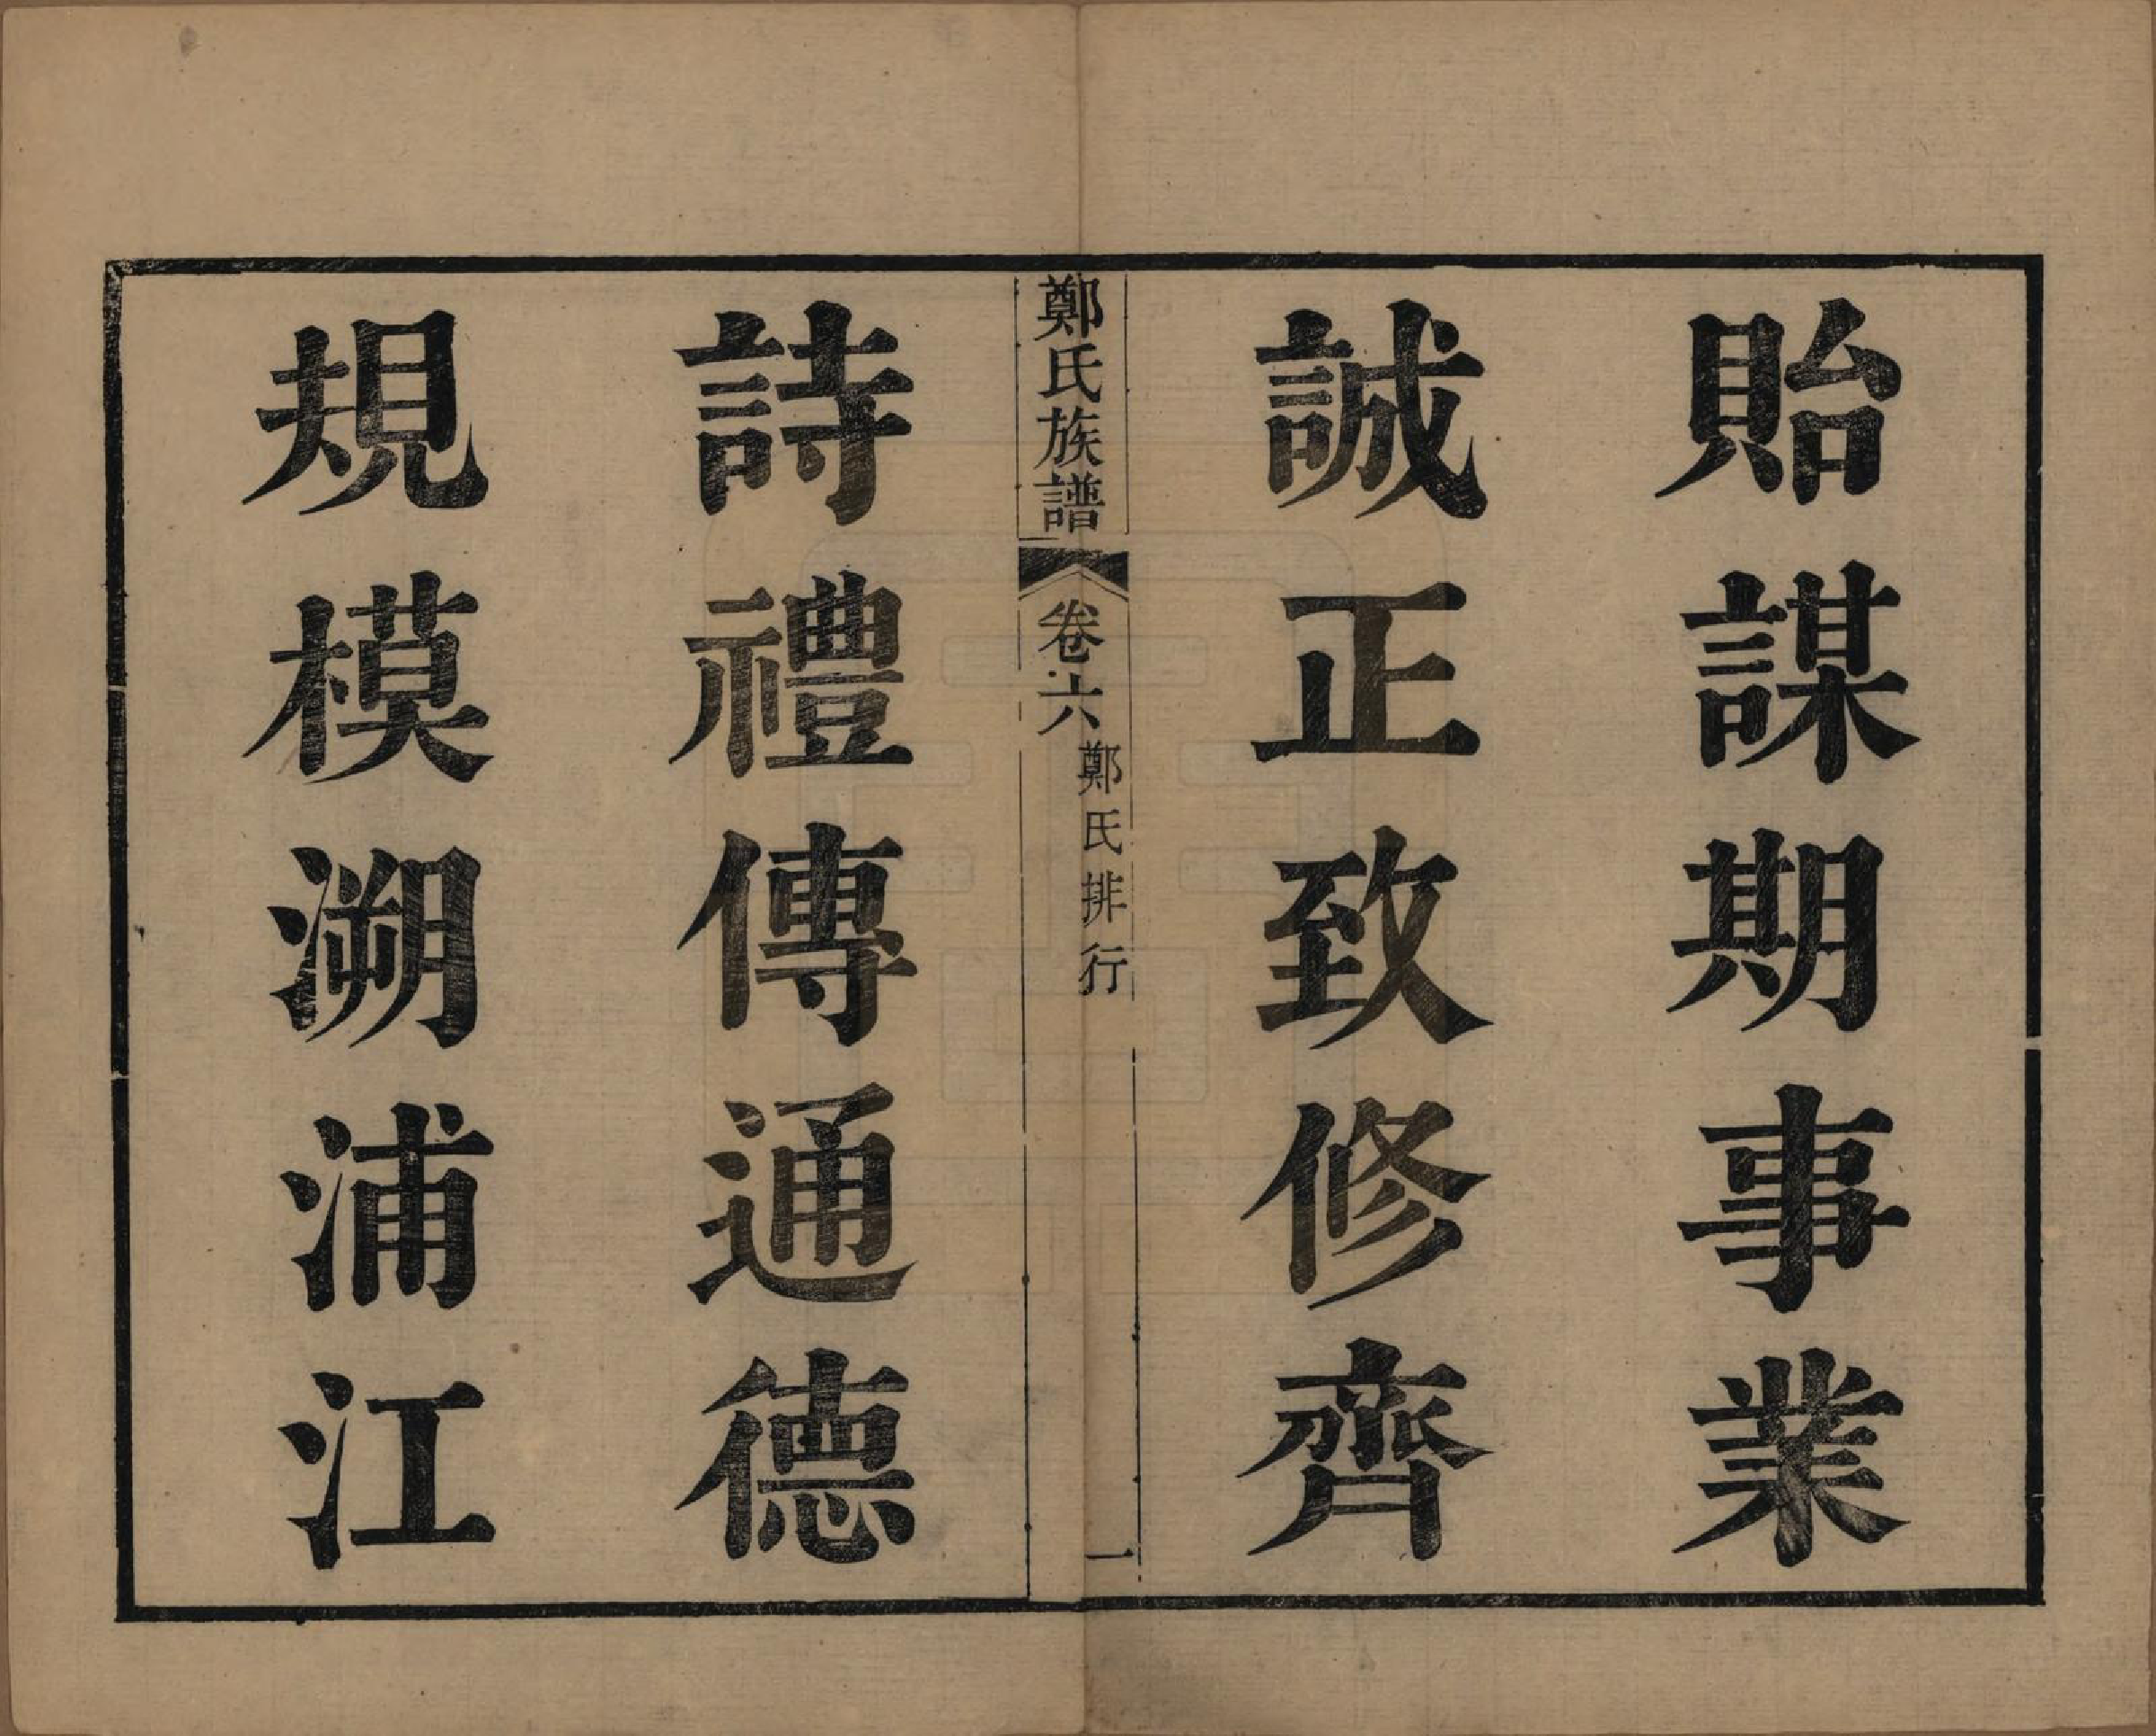 貽謀期事業
誠正致修齊
鄭氏族譜
卷六
鄭氏排行
一
詩禮傳通德
規模溯浦江